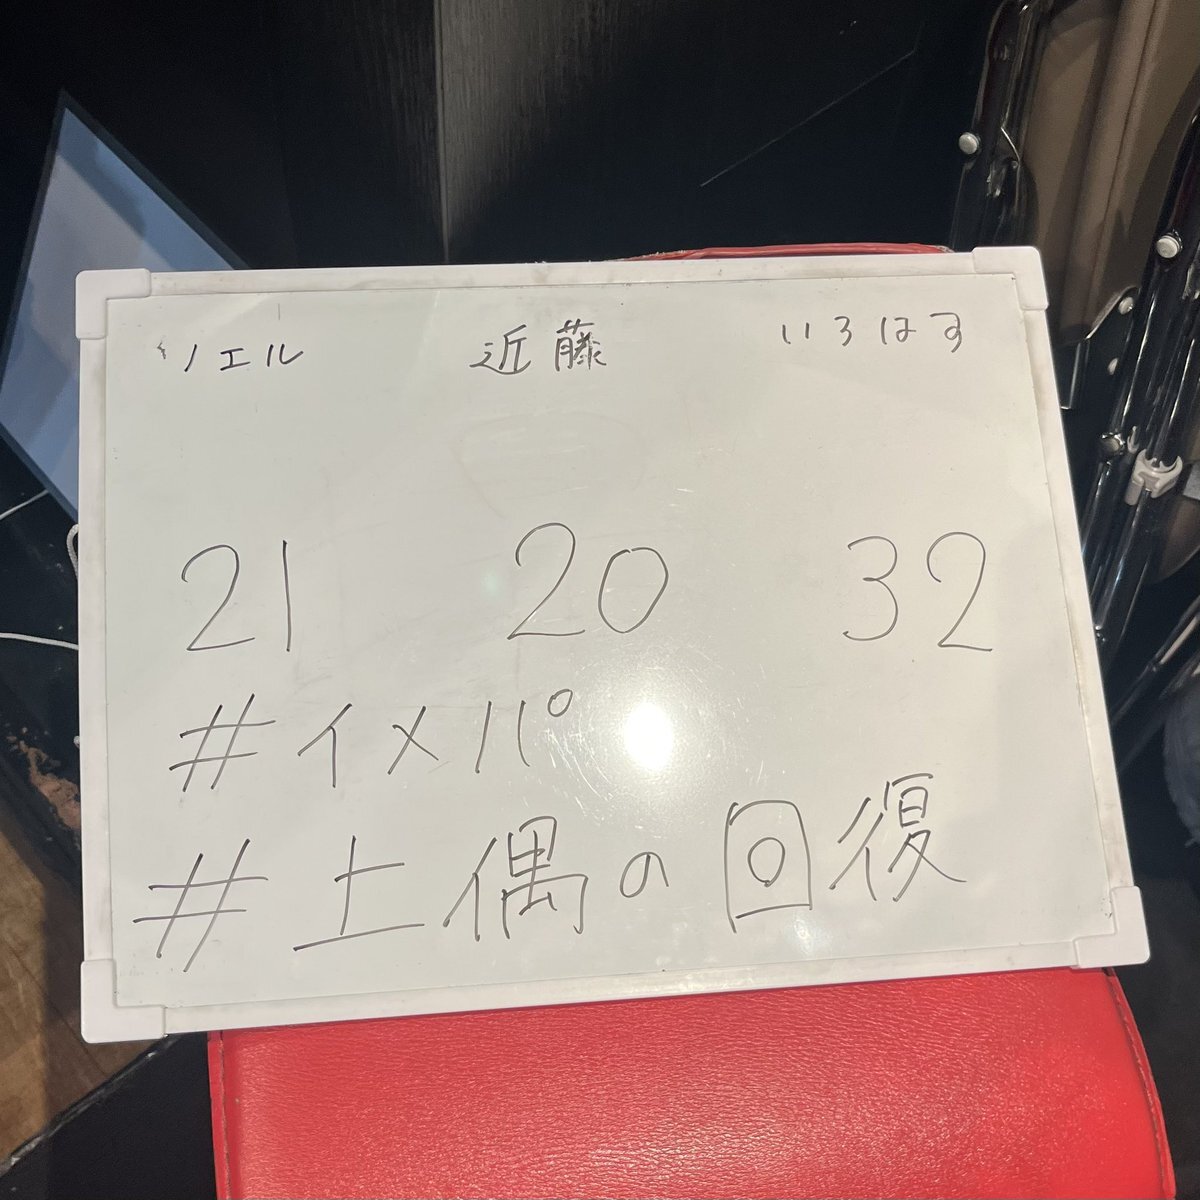 ノエル 近藤 いろはす
21 20 32
#イメパ
#土偶の回復